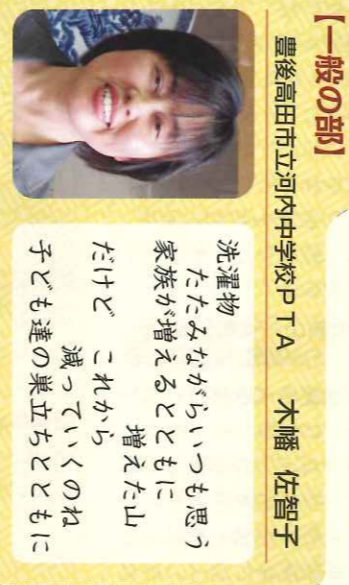 【一般の部】
豊後高田市立河内中学校PTA　木幡 佐智子
洗濯物
たたみながらいつも思う
家族が増えるとともに
増えた山
だけど これから
減っていくのね
子ども達の巣立ちとともに